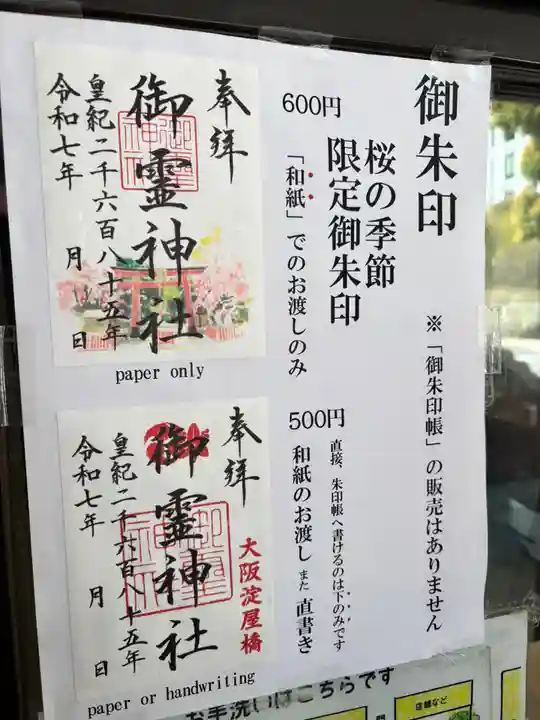 御朱印
※「御朱印帳」の販売はありません
桜の季節
限定御朱印
600円
「和紙」でのお渡しのみ
奉拝
御霊神社
皇紀二千六百八十五年
令和七年 月 日
paper only
500円
直接、朱印帳へ書けるのは下のみです
和紙のお渡し また 直書き
奉拝
大阪淀屋橋
御霊神社
皇紀二千六百八十五年
令和七年 月 日
paper or handwriting
お手洗いはこちらです
店舗など